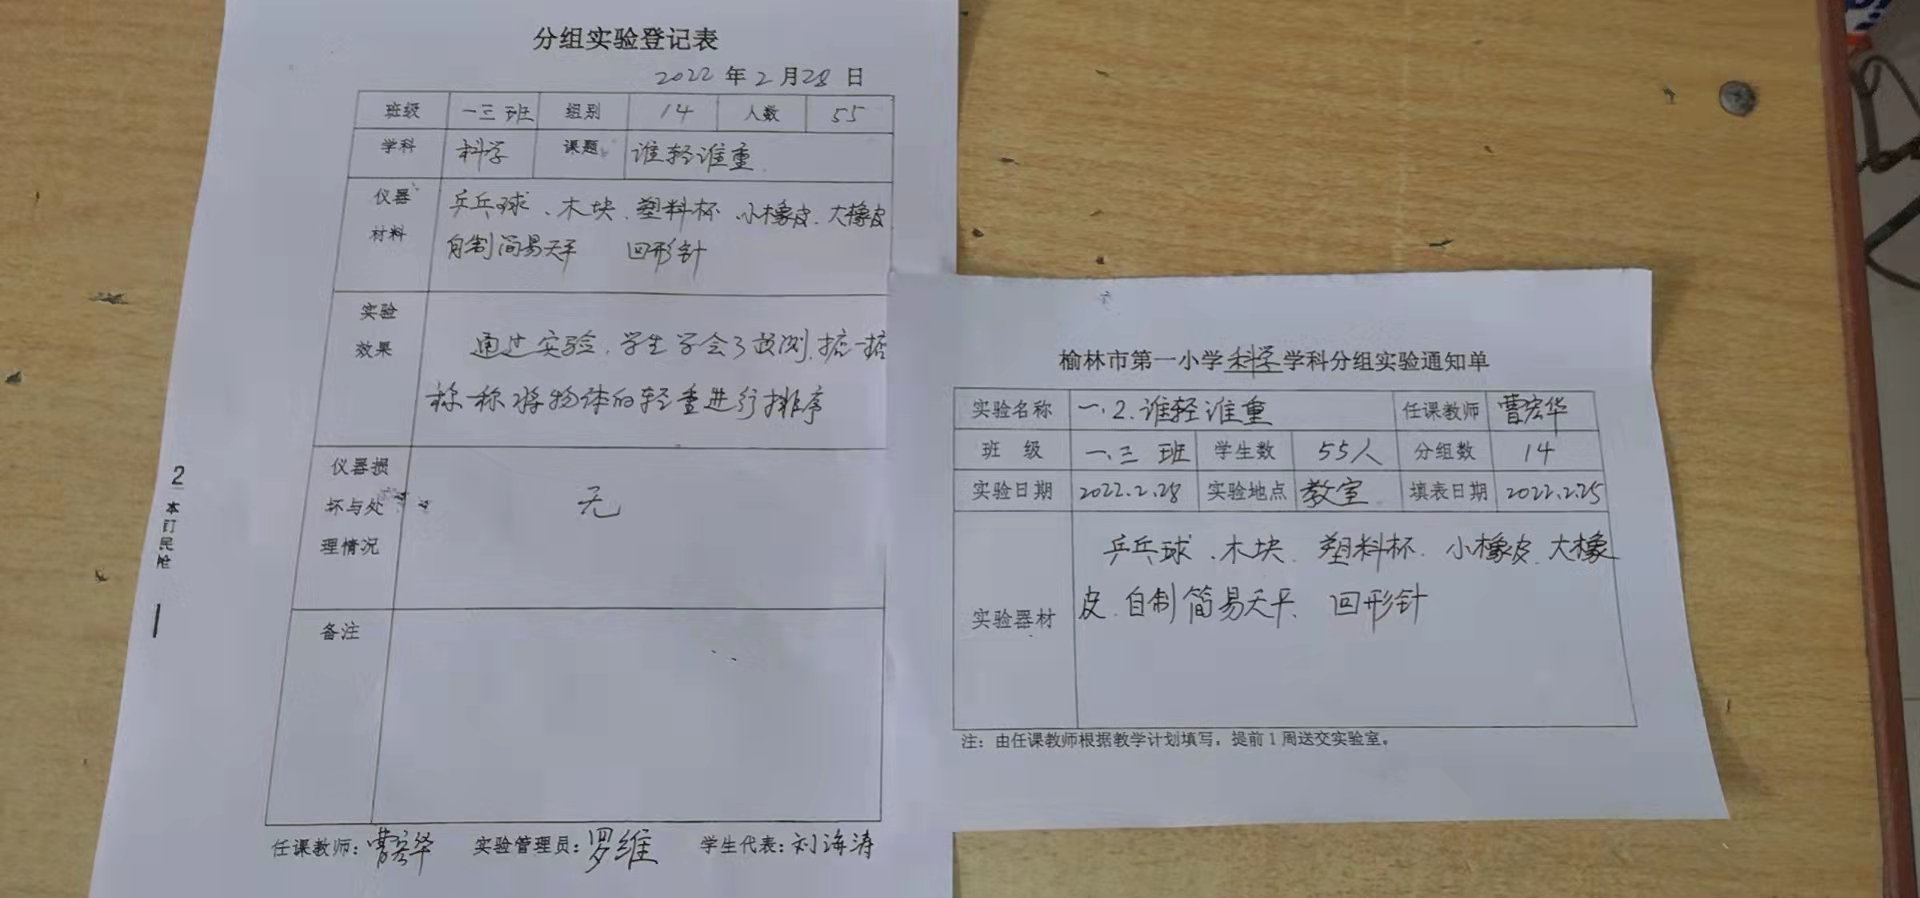 分组实验登记表
2022年2月28日
班级 一三班 组别 14 人数 55
学科 科学 课题 谁轻谁重
仪器 乒乓球、木块、塑料杯、小橡皮、大橡皮
材料 自制简易天平 回形针
实验
效果 通过实验,学生学会了预测,掂一掂
称一称将物体的轻重进行排序
仪器损
坏与处 无
理情况
备注
任课教师:曹宏华 实验管理员:罗维 学生代表:刘海涛
2
榆林市第一小学科学学科分组实验通知单
实验名称 一.2.谁轻谁重 任课教师 曹宏华
班 级 一.三班 学生数 55人 分组数 14
实验日期 2022.2.28 实验地点 教室 填表日期 2022.2.25
乒乓球、木块、塑料杯、小橡皮、大橡
实验器材 皮、自制简易天平、回形针
注:由任课教师根据教学计划填写,提前1周送交实验室。